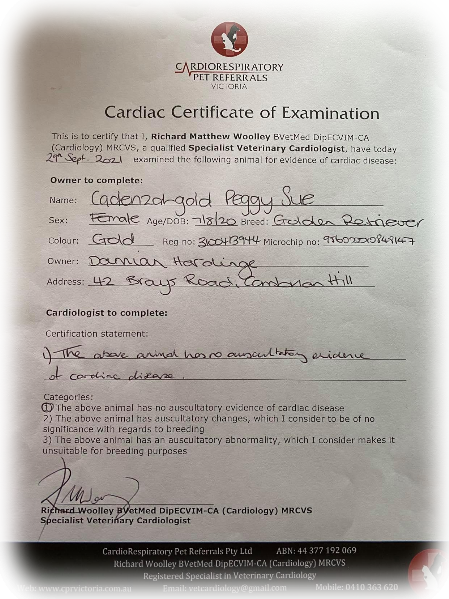 CARDIORESPIRATORY
PET REFERRALS
VICTORIA
Cardiac Certificate of Examination
This is to certify that I, Richard Matthew Woolley BVetMed DipECVIM-CA
(Cardiology) MRCVS, a qualified Specialist Veterinary Cardiologist, have today
29th Sept 2021 examined the following animal for evidence of cardiac disease:
Owner to complete:
Name: Cadenzargold Peggy Sue
Sex: Female Age/DOB: 7/8/20 Breed: Golden Retriever
Colour: Gold Reg no: 3100413944 Microchip no:
Owner: Damian Hardinge
Address: 42 Brays Road, Cambrian Hill
Cardiologist to complete:
Certification statement:
1) The above animal has no auscultatory evidence
of cardiac disease.
Categories:
1) The above animal has no auscultatory evidence of cardiac disease
2) The above animal has auscultatory changes, which I consider to be of no
significance with regards to breeding
3) The above animal has an auscultatory abnormality, which I consider makes it
unsuitable for breeding purposes
Richard Woolley BVetMed DipECVIM-CA (Cardiology) MRCVS
Specialist Veterinary Cardiologist
CardioRespiratory Pet Referrals Pty Ltd ABN: 44 377 192 069
Richard Woolley BVetMed DipECVIM-CA (Cardiology) MRCVS
Registered Specialist in Veterinary Cardiology
www.cprvictoria.com.au Email: vetcardiology@gmail.com Mobile: 0410 363 620